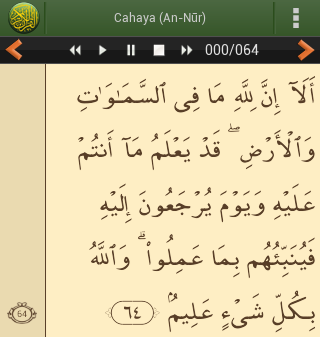 Cahaya (An-Nūr)
000/064
أَلَآ إِنَّ لِلَّهِ مَا فِى ٱلسَّمَـٰوَٰتِ
وَٱلْأَرْضِ ۖ قَدْ يَعْلَمُ مَآ أَنتُمْ
عَلَيْهِ وَيَوْمَ يُرْجَعُونَ إِلَيْهِ
فَيُنَبِّئُهُم بِمَا عَمِلُوا۟ ۗ وَٱللَّهُ
بِكُلِّ شَىْءٍ عَلِيمٌۢ ٦٤
64